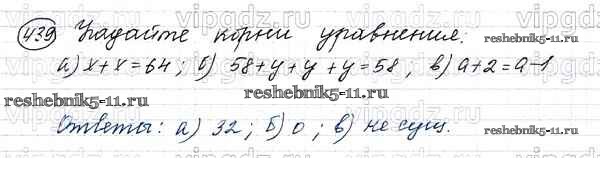 439 Угадайте корни уравнения:
а) x+x=64; б) 58+y+y+y=58; в) a+2=a-1
Ответы: а) 32; б) 0; в) не сущ.
vipgdz.ru
reshebnik5-11.ru
reshebnik5-11.ru
reshebnik5-11.ru
reshebnik5-11.ru